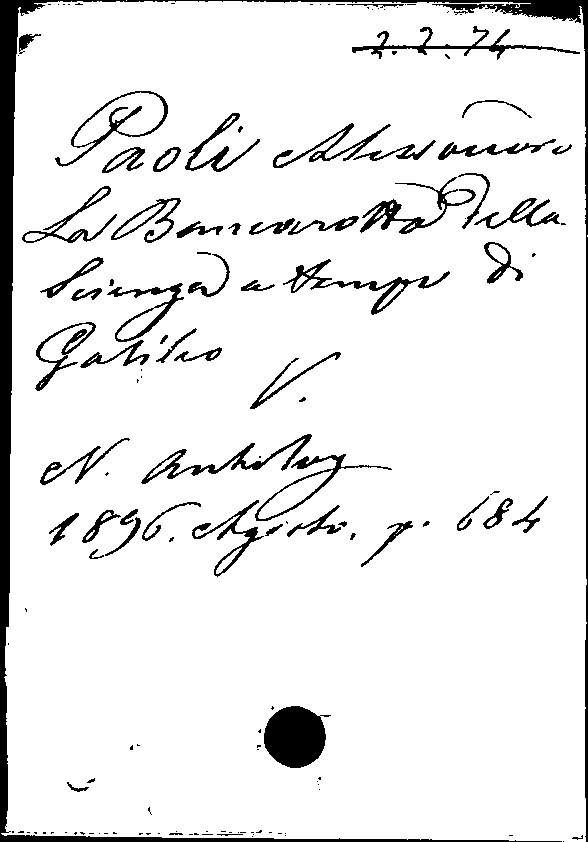 2.2.74
Paoli Alessandro
La Bancarotta della
Scienza a tempi di
Galileo
V.
N. Antolog
1896. Agosto, p. 684